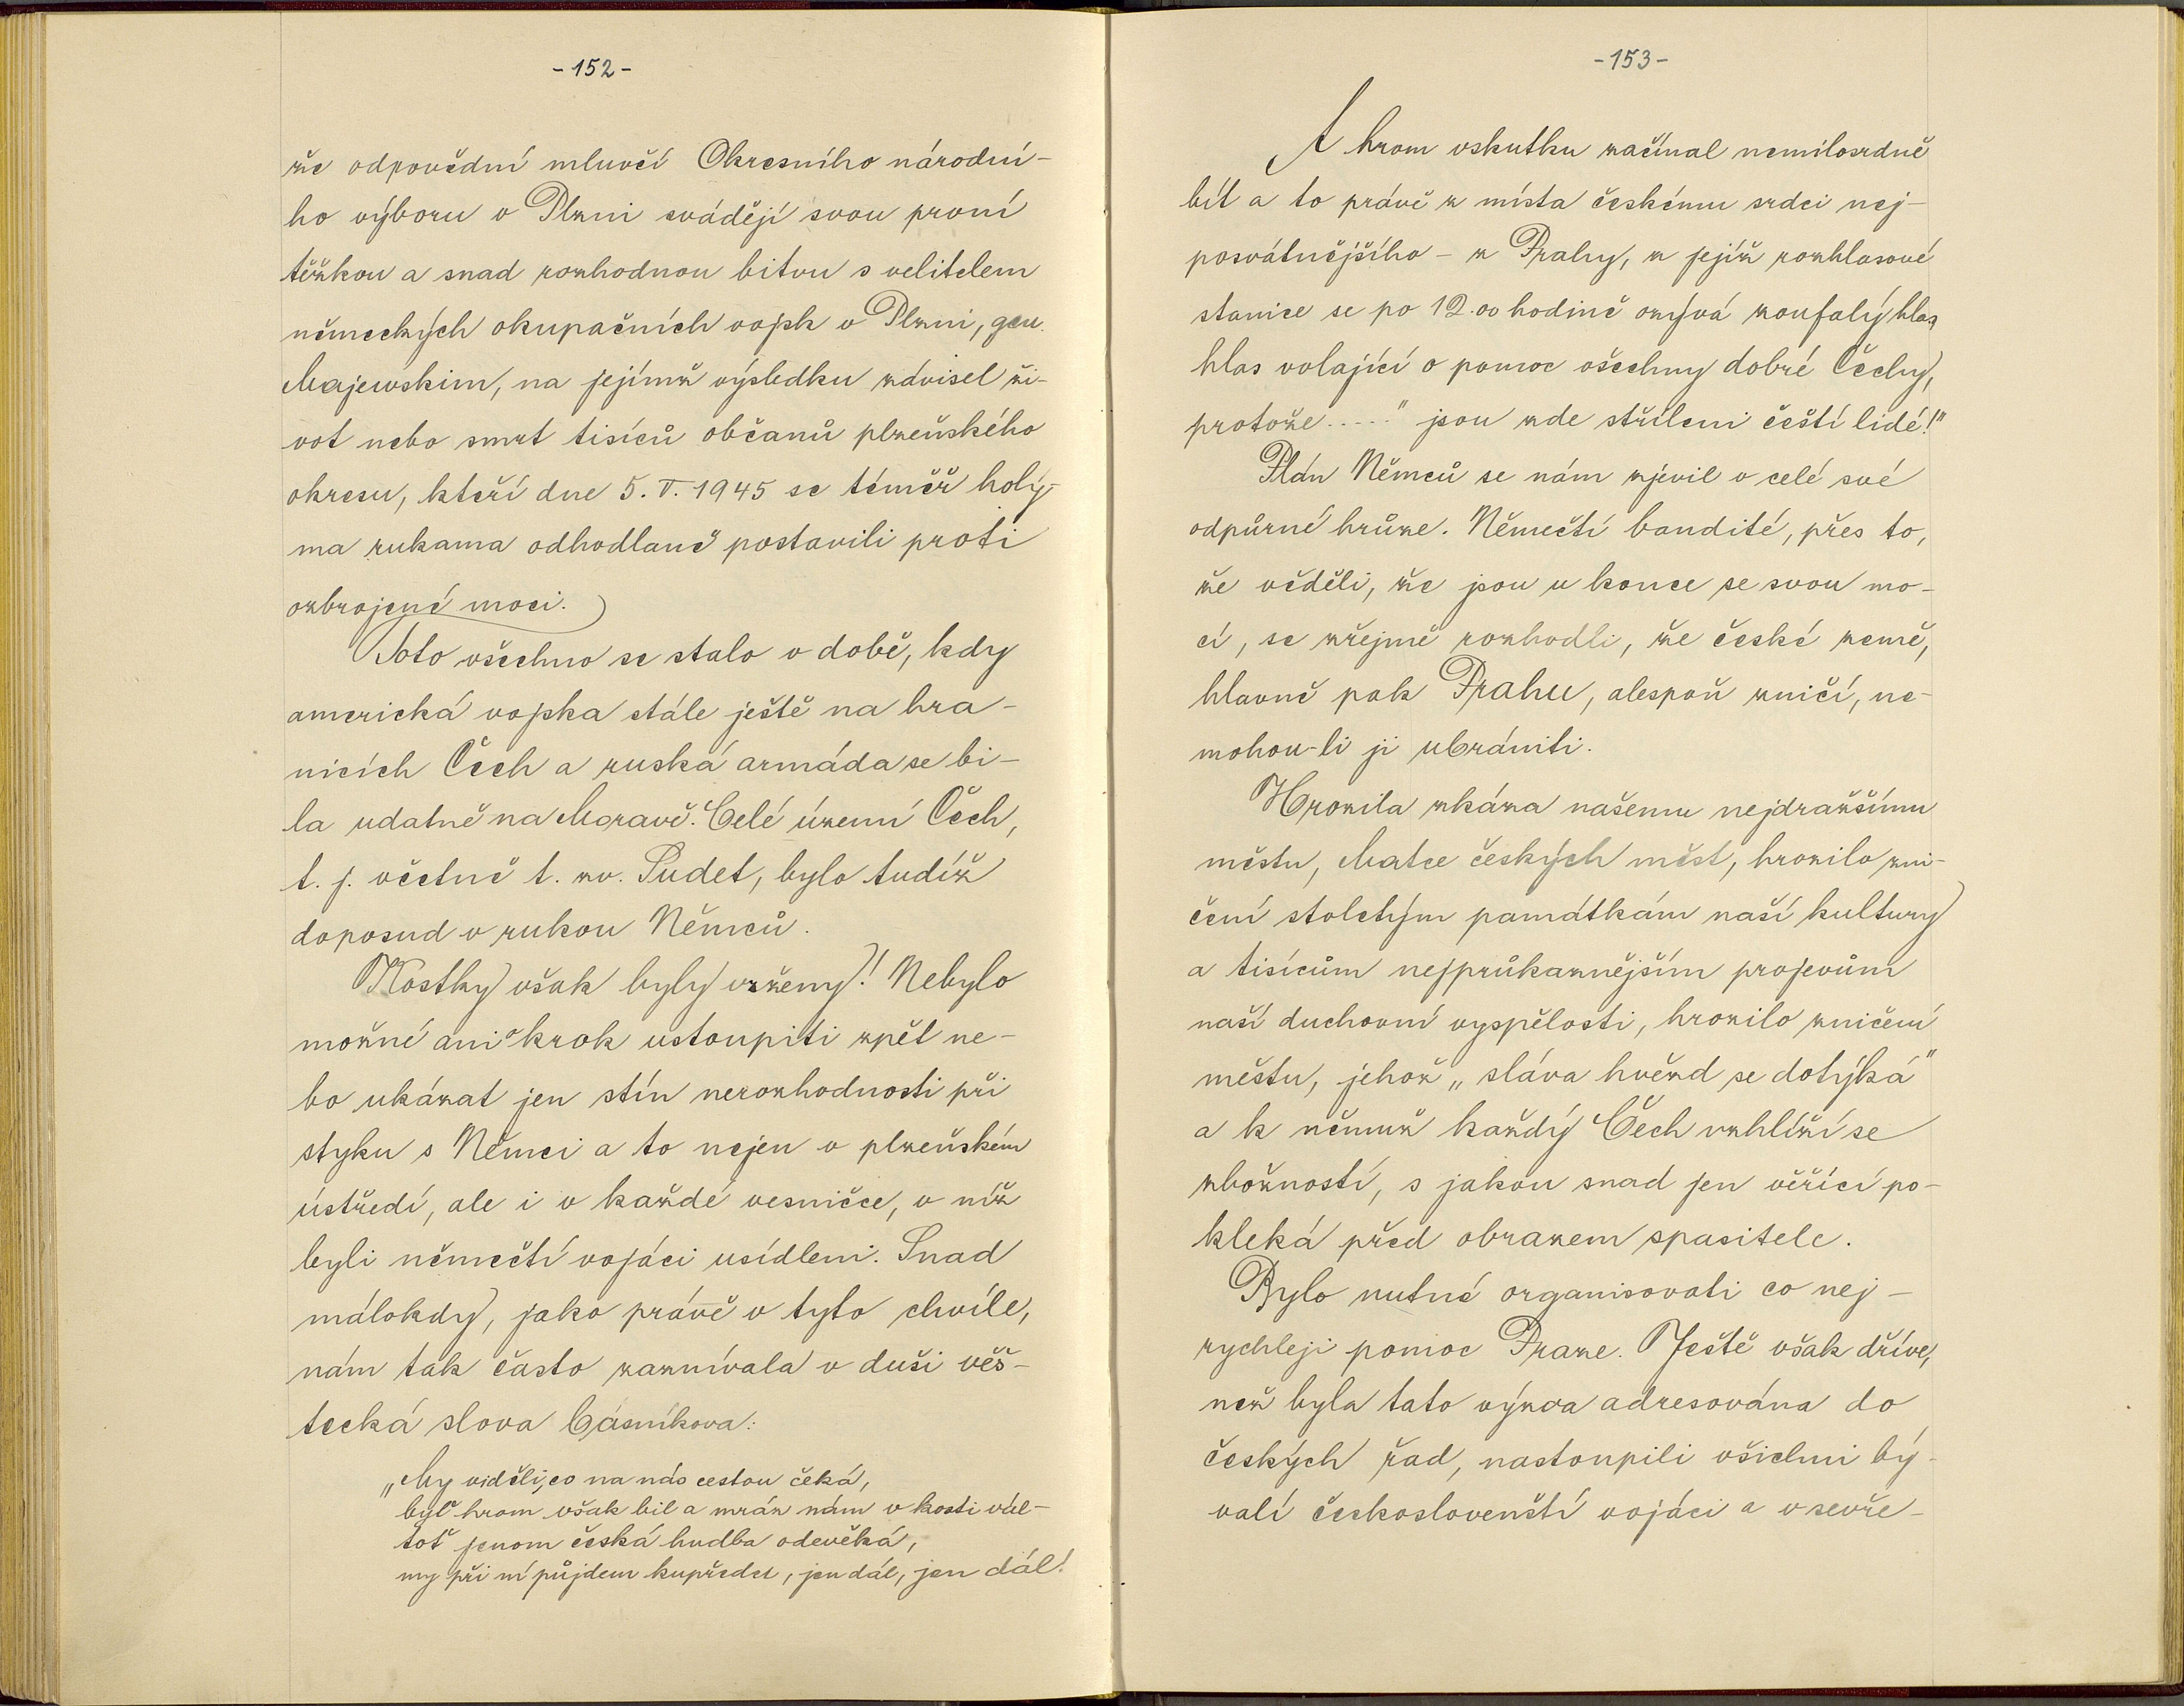 -152-
že odpovědní mluvčí Okresního národní-
ho výboru v Plzni svádějí svou první
těžkou a snad rozhodnou bitvu s velitelem
německých okupačních vojsk v Plzni, gen.
Majewskim, na jejímž výsledku závisel ži-
vot nebo smrt tisíců občanů plzeňského
okresu, kteří dne 5. V. 1945 se téměř holý-
ma rukama odhodlaně postavili proti
ozbrojené moci.
Toto všechno se stalo v době, kdy
americká vojska stále ještě na hra-
nicích Čech a ruská armáda se bi-
la udatně na Moravě. Celé území Čech,
t. j. včetně t. zv. Sudet, bylo tudíž
doposud v rukou Němců.
Kostky však byly vrženy! Nebylo
možné ani o krok ustoupiti zpět ne-
bo ukázat jen stín nerozhodnosti při
styku s Němci a to nejen v plzeňském
ústředí, ale i v každé vesničce, v níž
byli němečtí vojáci usídleni. Snad
málokdy, jako právě v tyto chvíle,
nám tak často zaznívala v duši věš-
tecká slova básníkova:
„My viděli, co na nás cestou čeká,
byť hrom však bil a mráz nám v kosti vál-
toť jenom česká hudba odevěká,
my při ní půjdem kupředu, jen dál, jen dál!
-153-
A hrom vskutku začínal nemilosrdně
bít a to právě z místa českému srdci nej-
posvátnějšího - z Prahy, z jejíž rozhlasové
stanice se po 12.00 hodině ozývá zoufalý hlas
hlas volající o pomoc všechny dobré Čechy,
protože ....." jsou zde stříleni čeští lidé!"
Plán Němců se nám zjevil v celé své
odpůrné hrůze. Němečtí bandité, přes to,
že věděli, že jsou u konce se svou mo-
cí, se zřejmě rozhodli, že české země,
hlavně pak Prahu, alespoň zničí, ne-
mohou-li ji ubrániti.
Hrozila zkáza našemu nejdražšímu
městu, Matce českých měst, hrozilo zni-
čení stoletým památkám naší kultury
a tisícům nejprůkaznějším projevům
naší duchovní vyspělosti, hrozilo zničení
městu, jehož „sláva hvězd se dotýká"
a k němuž každý Čech vzhlíží se
zbožností, s jakou snad jen věřící po-
kleká před obrazem spasitele.
Bylo nutné organisovati co nej-
rychleji pomoc Praze. Ještě však dříve,
než byla tato výzva adresována do
českých řad, nastoupili všichni bý-
valí českoslovenští vojáci a v sevře-